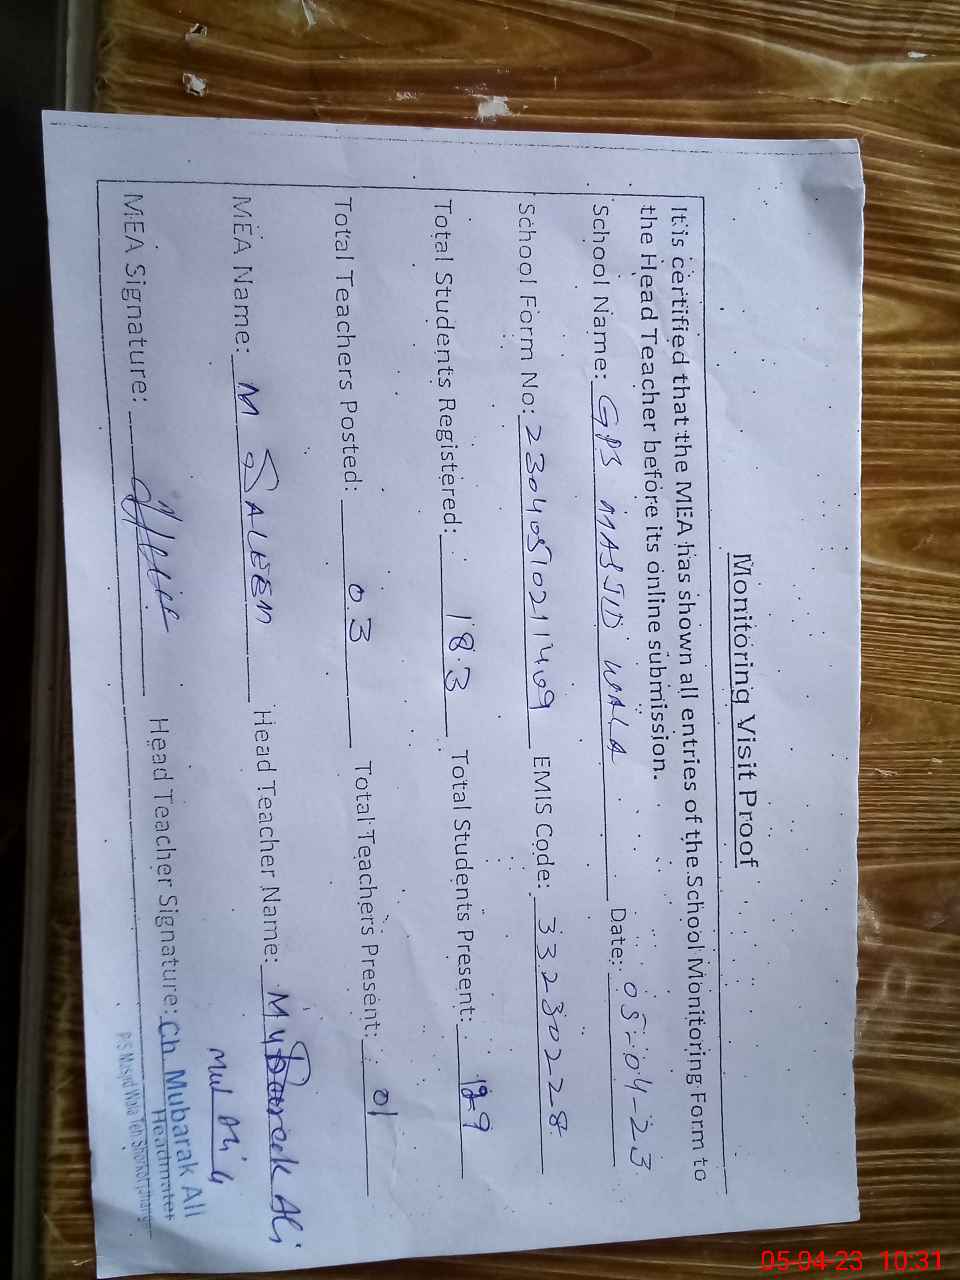 Monitoring Visit Proof
It is certified that the MEA has shown all entries of the School Monitoring Form to
the Head Teacher before its online submission.
School Name: GPS MASJID WALA Date: 05-04-23
School Form No: 23040510211409 EMIS Code: 33230228
Total Students Registered: 183 Total Students Present: 129
Total Teachers Posted: 03 Total Teachers Present: 01
MEA Name: M SALEEM Head Teacher Name: Mubarak Ali
MEA Signature: Head Teacher Signature: Ch. Mubarak Ali
Headmaster
PS Masjid Wala Teh Shorkot Jhang
05-04-23 10:31